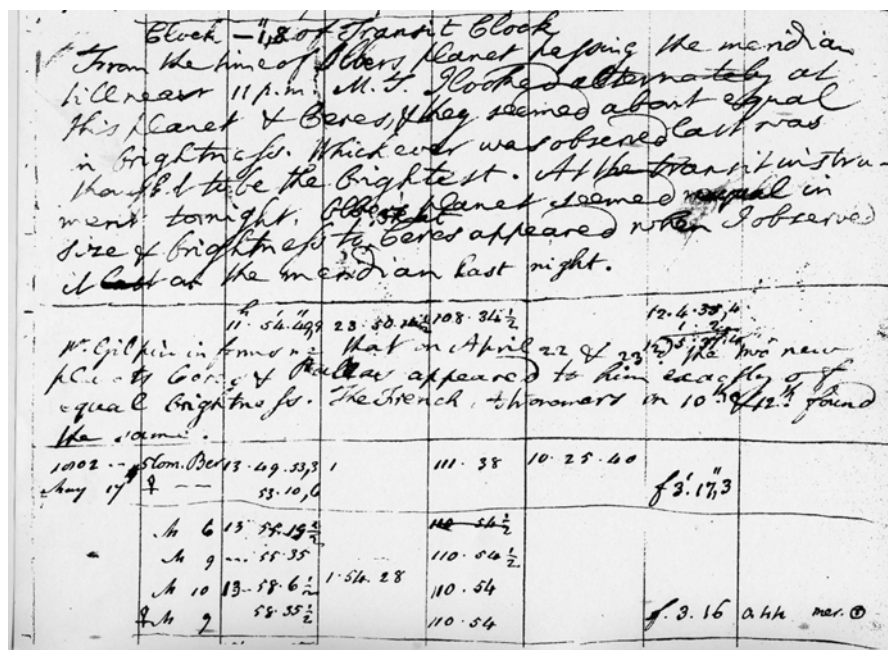 Clock – 1",8 of Transit Clock
From the time of Olbers planet passing the meridian
till near 11 p.m. M.T. I looked alternately at
this planet & Ceres, & they seemed about equal
in brightness. Which ever was observed last was
thought to be the brightest. At the transit instru-
ment tonight, Olbers planet seemed equal in
size & brightness to Ceres appeared when I observed
it at the meridian last night.
11h. 54'. 23. 50. 108. 34½ 12. 4. 38,4
Mr. Gilpin informs me that on April 22 & 23d the two new
planets Ceres & Pallas appeared to him exactly of
equal brightness. The French Astronomers on 10th & 12th found
the same.
5 Com. Ber 13. 49. 53,3 1 111. 38 10. 25. 40
May 17th -- 53. 10,6 f 3'. 17",3
6 13. 110 54½
9 --- 55. 35 110. 54½
10 13. 58. 6½ 1. 54. 28 110. 54
9 58. 35½ 110. 54 f. 3. 16 mer.